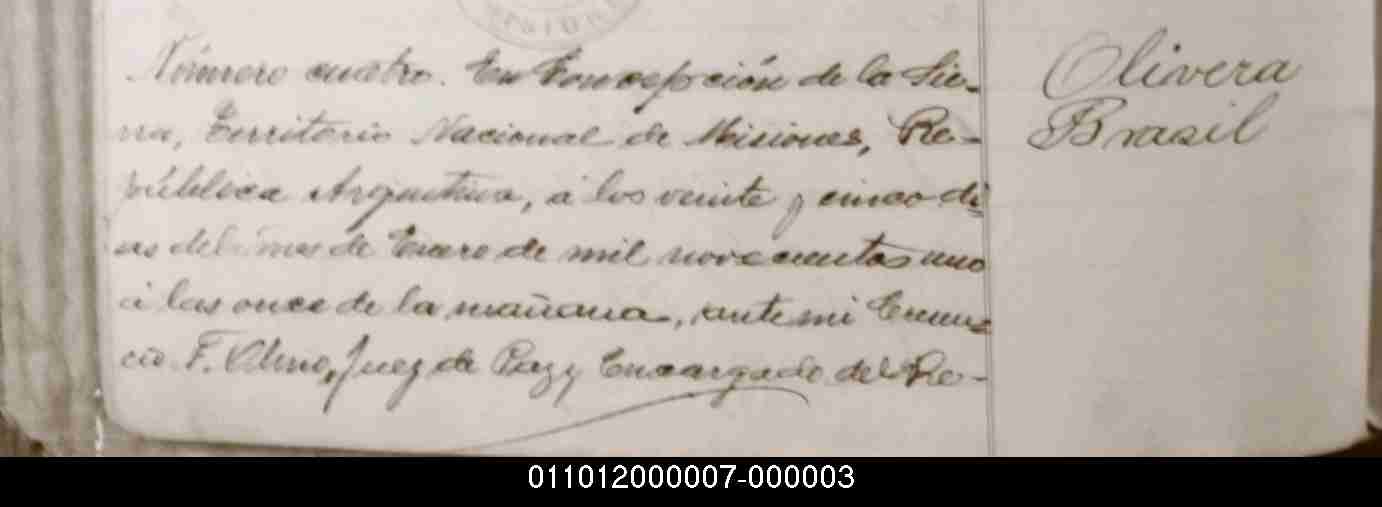 MISIONES
Número cuatro. En Concepción de la Sie-
rra, Territorio Nacional de Misiones, Re-
pública Argentina, á los veinte y cinco di-
as del mes de Enero de mil novecientos uno
á las once de la mañana, ante mi
cio F. Juez de Paz y Encargado del Re-
Olivera
Brasil
011012000007-000003